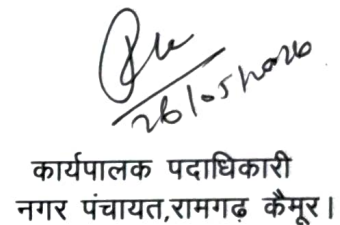 26/05/2026
कार्यपालक पदाधिकारी
नगर पंचायत,रामगढ़ कैमूर।